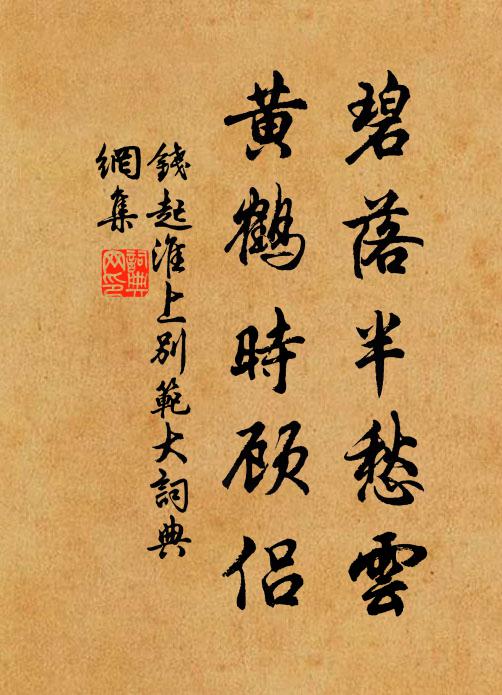 碧落半愁雲
黄鶴時顾侣
錢起淮上别範大詞典
網集
詞典
网印